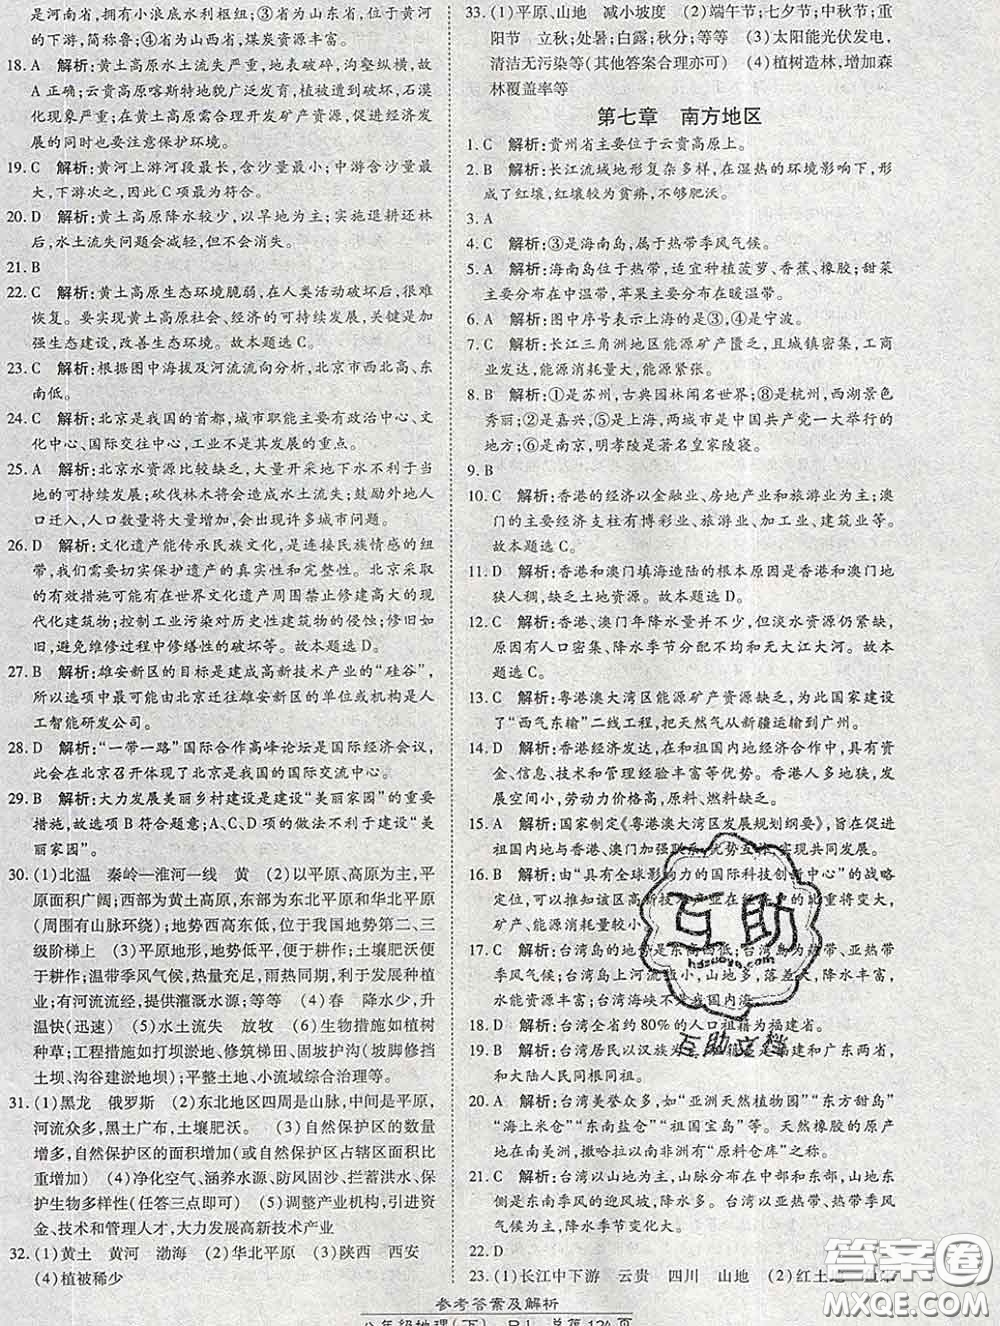 是河南省,拥有小浪底水利枢纽;③省为山东省,位于黄河
的下游,简称鲁;④省为山西省,煤炭资源丰富。
18. A 解析:黄土高原水土流失严重,地表破碎,沟壑纵横,故
A正确;云贵高原喀斯特地貌广泛发育,植被被破坏,石漠
化现象严重;在黄土高原需合理开发矿产资源,促进经济发
展的同时也要注意保护环境。
19. C 解析:黄河上游河段最长,含沙量最小;中游含沙量最
大,下游次之,因此C项最为符合。
20. D 解析:黄土高原降水较少,以旱地为主;实施退耕还林
后,水土流失问题会减轻,但不会消失。
21. B
22. C 解析:黄土高原生态环境脆弱,在人类活动干扰后,很难
恢复。要实现黄土高原社会、经济的可持续发展,关键是加
强生态建设,改善生态环境。故本题选C。
23. C 解析:根据图中海拔及河流流向分析,北京市西北高、东
南低。
24. C 解析:北京是我国的首都,城市职能主要有政治中心、文
化中心、国际交往中心,工业不是其发展的重点。
25. A 解析:北京水资源比较缺乏,大量开采地下水不利于当
地的可持续发展;砍伐林木将会造成水土流失;鼓励外地人
口迁入,人口数量将大量增加,会出现许多城市问题。
26. D 解析:文化遗产能传承民族文化,是联系民族情感的纽
带,我们需要切实保护遗产的真实性和完整性。北京采取
的有效措施可能有在世界文化遗产周围禁止修建高大的现
代化建筑物;控制工业污染对历史性建筑物的侵蚀;修旧如
旧,避免维修过程中修缮性的破坏等。故本题选D。
27. B 解析:雄安新区的目标是建成高新技术产业的“硅谷”,
所以选项中最可能由北京迁往雄安新区的单位或机构是人
工智能研发公司。
28. D 解析:“一带一路”国际合作高峰论坛是国际经济会议,
此会在北京召开体现了北京是我国的国际交流中心。
29. B 解析:大力发展美丽乡村建设是建设“美丽家园”的重要
措施,故选项B符合题意;A、C、D项的做法不利于建设“美
丽家园”。
30. (1)北温 秦岭—淮河一线 黄 (2)以平原、高原为主,平
原面积广阔;西部为黄土高原,东部为华北平原和华北平原
(周围有山脉环绕);地势西高东低,位于我国地势第二、三
级阶梯上 (3)平原地形,地势低平,便于耕作;土壤肥沃便
于耕作;温带季风气候,热量充足,雨热同期,利于发展种植
业;有河流流经,提供灌溉水源;等等 (4)春 降水少,升
温快(迅速) (5)水土流失 放牧 (6)生物措施如植树
种草;工程措施如打坝淤地、修筑梯田、固坡护沟(坡脚修挡
土坝、沟谷建淤地坝);平整土地、小流域综合治理等。
31. (1)黑龙 俄罗斯 (2)东北地区四周是山脉,中间是平原,
河流众多,黑土广布,土壤肥沃。 (3)自然保护区的数量
增多,自然保护区的面积增加(或自然保护区占辖区面积比
重增加) (4)净化空气、涵养水源、防风固沙、拦蓄洪水、保
护生物多样性(任答三点即可) (5)调整产业机构,引进资
金、技术和管理人才,大力发展高新技术产业
32. (1)黄土 黄河 渤海 (2)华北平原 (3)陕西 西安
(4)植被稀少
33. (1)平原、山地 减小坡度 (2)端午节;七夕节;中秋节;重
阳节 立秋;处暑;白露;秋分;等等 (3)太阳能光伏发电,
清洁无污染等(其他答案合理亦可) (4)植树造林,增加森
林覆盖率等
第七章 南方地区
1. C 解析:贵州省主要位于云贵高原上。
2. B 解析:长江流域地形复杂多样,在湿热的环境影响下,
形成了红壤,红壤较为贫瘠,不够肥沃。
3. A
4. C 解析:③是海南岛,属于热带季风气候。
5. A 解析:海南岛位于热带,适宜种植菠萝、香蕉、橡胶;甜菜
主要分布在中温带,苹果主要分布在暖温带。
6. A 解析:图中序号表示上海的是③,④是宁波。
7. C 解析:长江三角洲地区能源矿产匮乏,且城镇密集,工业发
达,能源消耗量大,能源紧张。
8. B 解析:①是苏州,古典园林闻名世界;⑧是杭州,西湖景色
秀丽;②是嘉兴,⑤是上海,两城市是中国共产党一大举行的
地方;⑥是南京,明孝陵是著名皇家陵寝。
9. B
10. C 解析:香港的经济以金融业、房地产业和旅游业为主;澳
门的主要经济支柱有博彩业、旅游业、加工业、建筑业等。
故本题选C。
11. D 解析:香港和澳门填海造陆的根本原因是香港和澳门地
狭人稠,缺乏土地资源。故本题选D。
12. C 解析:香港、澳门年降水量并不少,但淡水资源仍紧缺,
原因有人口密集、降水季节分配不均和无大江大河。故本
题选C。
13. C 解析:粤港澳大湾区能源矿产资源缺乏,为此国家建设
了“西气东输”二线工程,把天然气从新疆运输到广州。
14. D 解析:香港经济发达,在和祖国内地经济合作中,具有资
金、信息、技术和管理经验丰富等优势。香港人多地狭,发
展空间小,劳动力价格高,原料、燃料缺乏。
15. A 解析:国家制定《粤港澳大湾区发展规划纲要》,旨在促进
祖国内地与香港、澳门加强联系,优势互补,实现共同发展。
16. B 解析:由“具有全球影响力的国际科技创新中心”的战略
定位,可以推知该区高新技术产业在经济中的比重将变大,
矿产、能源消耗量较小
17. C 解析:台湾岛的地势是东高西低;台湾岛为热带、亚热带
季风气候;台湾岛上河流短小,山地多,落差大,降水丰富,
水能资源丰富;台湾海峡不是我国内海
18. D 解析:台湾全省约80%的人口祖籍为福建省。
19. B 解析:台湾居民以汉族为主,福建和广东两省,
和大陆人民同根同祖。
20. A 解析:台湾美誉众多,如“亚洲天然植物园”“东方甜岛”
“海上米仓”“东南盐仓”“祖国宝岛”等。天然橡胶的原产
地在南美洲,撒哈拉以南非洲有“原料仓库”之称。
21. C 解析:台湾以山地为主,山脉分布在中部和东部,山地东
侧是东南季风的迎风坡,降水多。台湾以亚热带、热带季风
气候为主,降水季节变化大。
22. D
23. (1)长江中下游 云贵 四川 山地 (2)红土地
互助
hdzuoye.com
互助文档
答案圈
参考答案及解析
八年级地理(下) RJ 总第124页